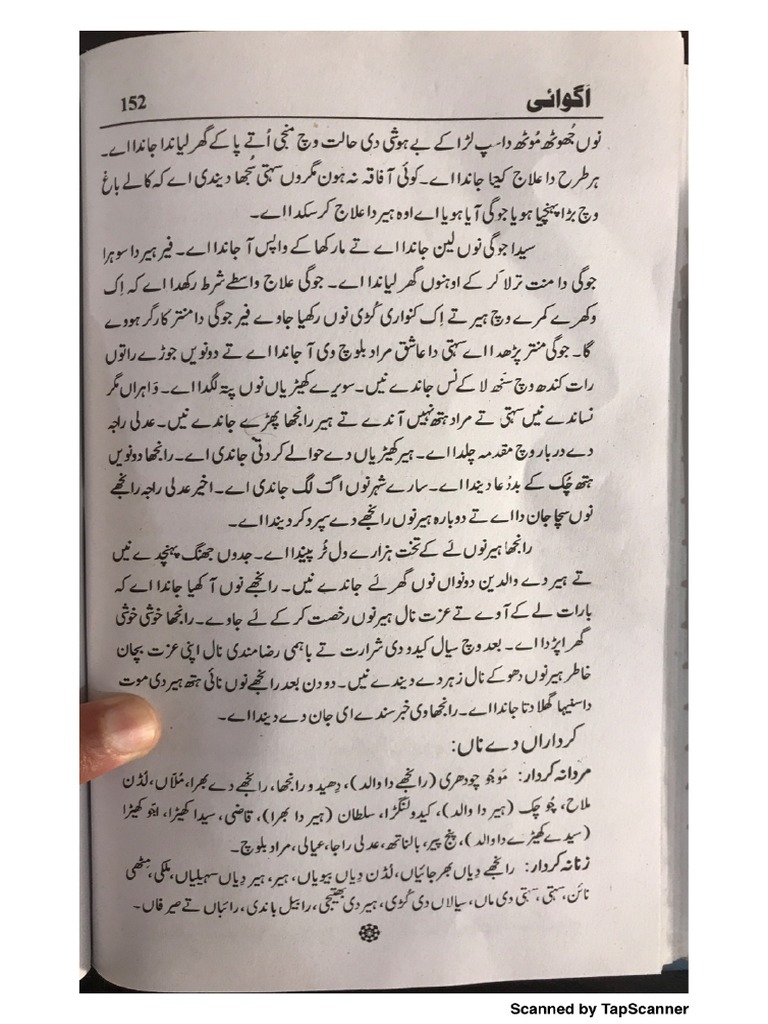 اَگوائی
152
نوں جُھوٹھ مُوٹھ دا سپ لڑا کے بے ہوشی دی حالت وچ منجی اُتے پا کے گھر لیاندا جاندا اے۔
ہر طرح دا علاج کیتا جاندا اے۔ کوئی آفاقہ نہ ہون مگروں سہتی سُجھا دیندی اے کہ کالے باغ
وچ بڑا پہنچیا ہویا جوگی آیا ہویا اے اوہ ہیر دا علاج کر سکدا اے۔
سیدا جوگی نوں لین جاندا اے تے مار کھا کے واپس آ جاندا اے۔ فیر ہیر دا سوہرا
جوگی دا منت ترلا کر کے اوہنوں گھر لیاندا اے۔ جوگی علاج واسطے شرط رکھدا اے کہ اِک
وکھرے کمرے وچ ہیر تے اِک کنواری کُڑی نوں رکھیا جاوے فیر جوگی دا منتر کارگر ہووے
گا۔ جوگی منتر پڑھدا اے سہتی دا عاشق مراد بلوچ وی آ جاندا اے تے دونویں جوڑے راتوں
رات کندھ وچ سَنھ لا کے نس جاندے نیں۔ سویرے کھیڑیاں نوں پتہ لگدا اے۔ وَاہراں مگر
نساندے نیں سہتی تے مراد ہتھ نہیں آندے تے ہیر رانجھا پھڑے جاندے نیں۔ عدلی راجہ
دے دربار وچ مقدمہ چلدا اے۔ ہیر کھیڑیاں دے حوالے کر دتی جاندی اے۔ رانجھا دونویں
ہتھ چُک کے بددُعا دیندا اے۔ سارے شہر نوں اگ لگ جاندی اے۔ اخیر عدلی راجہ رانجھے
نوں سچا جان دا اے تے دوبارہ ہیر نوں رانجھے دے سپرد کر دیندا اے۔
رانجھا ہیر نوں لَے کے تخت ہزارے ول ٹُر پیندا اے۔ جدوں جھنگ پہنچدے نیں
تے ہیر دے والدین دوناں نوں گھر لَے جاندے نیں۔ رانجھے نوں آکھیا جاندا اے کہ
بارات لے کے آوے تے عزت نال ہیر نوں رخصت کر کے لَے جاوے۔ رانجھا خوشی خوشی
گھر اپڑدا اے۔ بعد وچ سیال کیدو دی شرارت تے باہمی رضا مندی نال اپنی عزت بچان
خاطر ہیر نوں دھوکے نال زہر دے دیندے نیں۔ دو دن بعد رانجھے نوں نائی ہتھ ہیر دی موت
دا سنیہا گھلا دتا جاندا اے۔ رانجھا وی خبر سندے ای جان دے دیندا اے۔
کرداراں دے ناں:
مردانہ کردار: مَوجُو چودھری (رانجھے دا والد)، دِھیدو رانجھا، رانجھے دے بھرا، مُلّاں، لُڈن
ملاح، چُوچک (ہیر دا والد)، کیدو لنگڑا، سلطان (ہیر دا بھرا)، قاضی، سیدا کھیڑا، اجّو کھیڑا
(سیدے کھیڑے دا والد)، پنج پیر، بالناتھ، عدلی راجا، عیالی، مراد بلوچ۔
زنانہ کردار: رانجھے دِیاں بھرجائیاں، لُڈن دِیاں بیویاں، ہیر، ہیر دِیاں سہیلیاں، ملکی، مِٹھی
نائن، سہتی، سہتی دی ماں، سیالاں دی کُڑی، ہیر دی بھتیجی، رابیل باندی، رائباں تے صیرفاں۔
Scanned by TapScanner